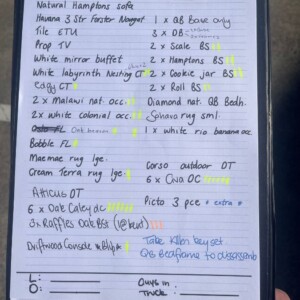 Natural Hamptons sofa
Havana 3 Str Forster Nougat
Tile ETU
Prop TV
White mirror buffet
White labyrinth Nesting CT
Eazy CT
2 x Malawi nat occ.
2 x white colonial occ
FL Oak
Bobble FL
Maemae rug lge.
Cream Terra rug lge
Atticus DT
6 x Oak Caley dc
3x Raffles Oak Bst (1@bent)
Driftwood Console x Blip
1 x QB Base only
3 x DB
2 x Scale BS
2 x Hamptons BS
2 x Cookie jar BS
2 x Roll BS
Diamond nat. QB Bedh.
Sahara rug sml.
1 x white rio banana occ
Corso outdoor DT
6 x Civa OC
Picto 3 pce + extra
Take Allen key set
QB Bedframe to disassemb
L:
O:
Guys in
Truck: